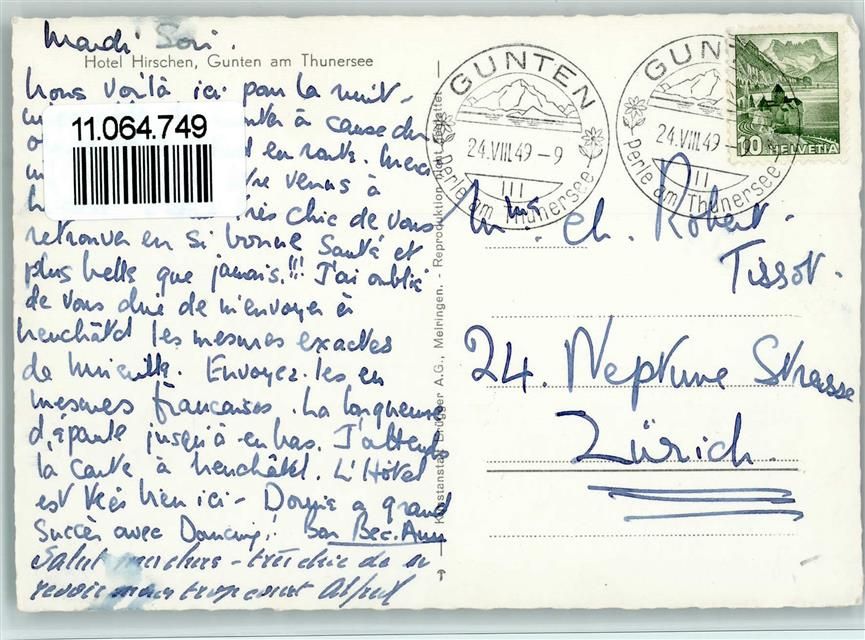 Mardi Soir.
Hotel Hirschen, Gunten am Thunersee
Nous voilà ici pour la nuit -
à cause du
en route. Merci
venus à
très chic de vous
retrouver en si bonne Santé et
plus belle que jamais.!!! J'ai oublié
de vous dire de m'envoyer à
Neuchâtel les mesures exactes
de Mireille. Envoyez-les en
mesures françaises. La longueur
d'épaule jusqu'à en bas. J'attends
la carte à Neuchâtel. L'Hôtel
est très bien ici - a grand
Succès avec Dancing! Bon Bec.
Salut - très chic de
revoir trop court
11.064.749
Kunstanstalt Brügger A.G., Meiringen. - Reproduktion nicht gestattet
GUNTEN
24.VIII.49-9
III
Perle am Thunersee
GUNT
24.VIII.49-
II
Perle am Thunersee
10 HELVETIA
Mme. Ch. Robert-
Tissot.
24. Neptune Strasse
Zürich.